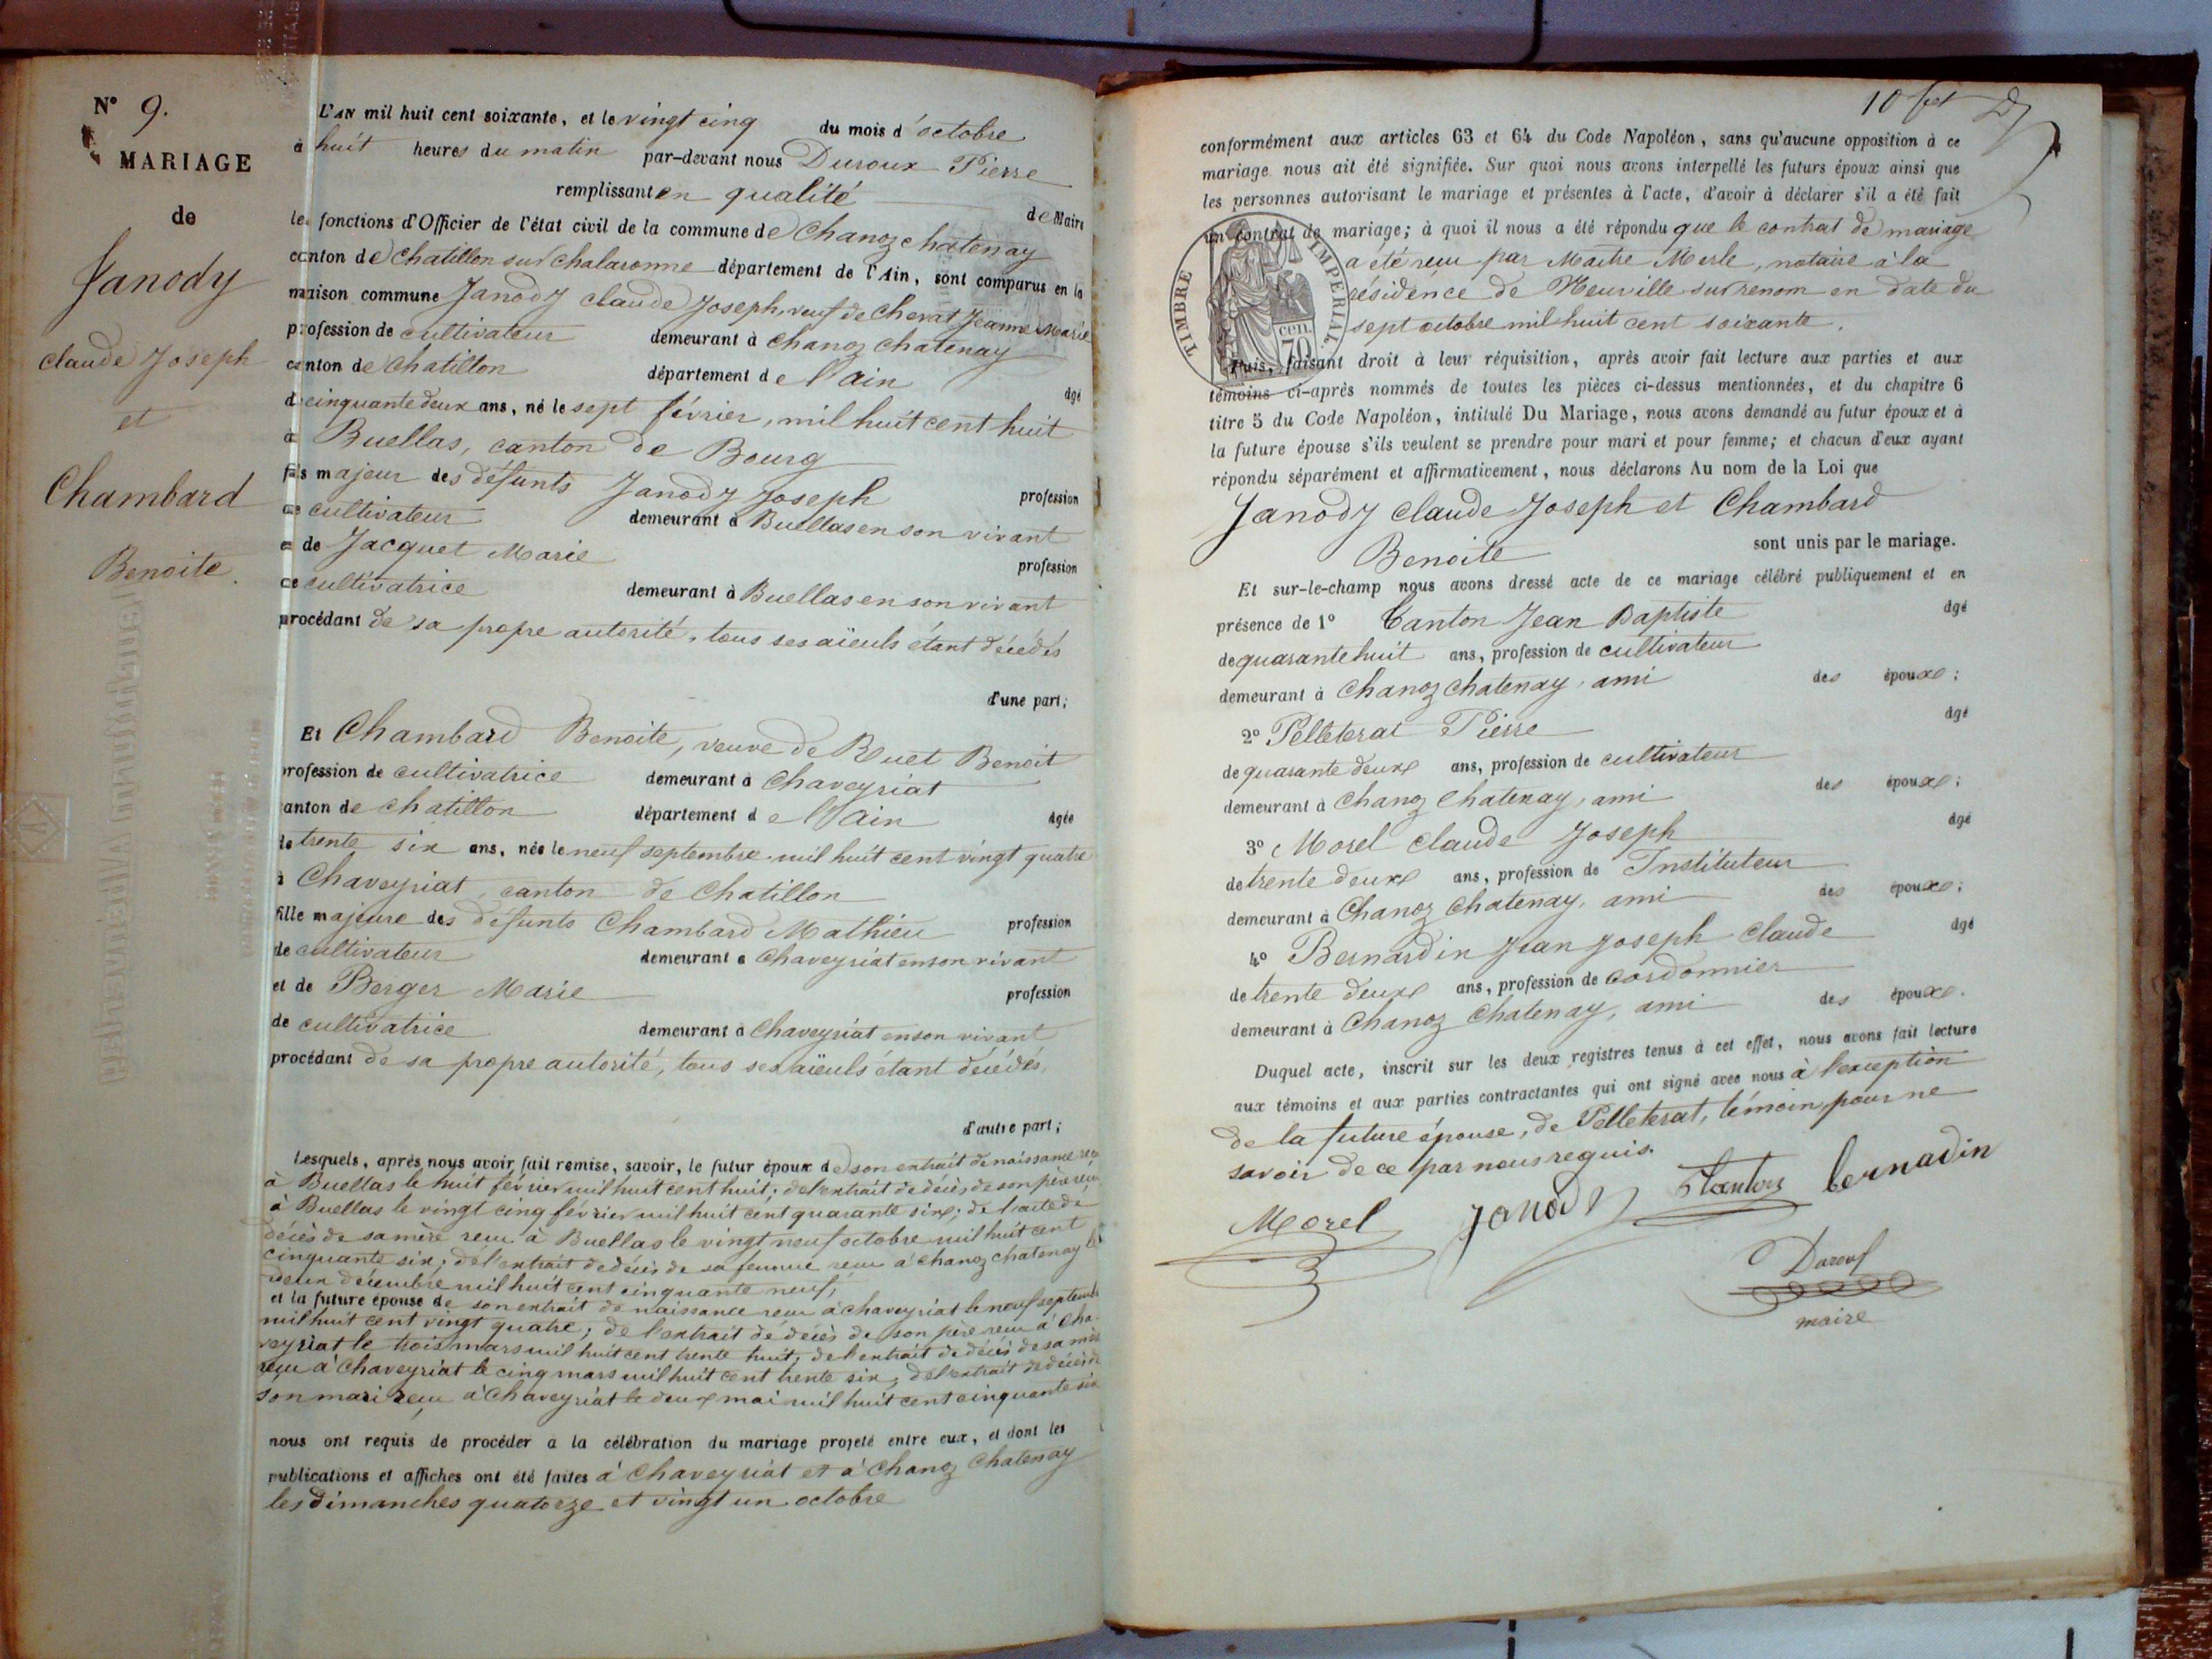 N° 9.
MARIAGE
de
Janody
Claude Joseph
et
Chambard
Benoite.
L'AN mil huit cent soixante, et le vingt cinq du mois d'octobre
à huit heures du matin par-devant nous Duroux Pierre
remplissant en qualité de Maire
les fonctions d'Officier de l'état civil de la commune de Chanoz chatenay
canton de Chatillon sur chalaronne département de l'Ain, sont comparus en la
maison commune Janody claude Joseph, veuf de Chevat Jeanne Marie
profession de cultivateur demeurant à Chanoz chatenay
canton de Chatillon département de l'ain âgé
de cinquante deux ans, né le sept février, mil huit cent huit
à Buellas, canton de Bourg
fils majeur des défunts Janody Joseph profession
de cultivateur demeurant à Buellas en son vivant
et de Jacquet Marie profession
de cultivatrice demeurant à Buellas en son vivant
procédant de sa propre autorité, tous ses aïeuls étant décédés
d'une part;
Et Chambard Benoite, veuve de Buet Benoit
profession de cultivatrice demeurant à Chaveyriat
canton de chatillon département de l'Ain âgée
de trente six ans, née le neuf septembre mil huit cent vingt quatre
à Chaveyriat, canton de Chatillon
fille majeure des défunts Chambard Mathieu profession
de cultivateur demeurant à Chaveyriat en son vivant
et de Berger Marie profession
de cultivatrice demeurant à Chaveyriat en son vivant
procédant de sa propre autorité, tous ses aïeuls étant décédés,
d'autre part;
Lesquels, après nous avoir fait remise, savoir, le futur époux de son extrait de naissance reçu
à Buellas le huit février mil huit cent huit; de l'extrait de décès de son père reçu
à Buellas le vingt cinq février mil huit cent quarante six; de l'acte de
décès de sa mère reçu à Buellas le vingt neuf octobre mil huit cent
cinquante six; de l'extrait de décès de sa femme reçu à chanoz chatenay le
deux décembre mil huit cent cinquante neuf;
et la future épouse de son extrait de naissance reçu à chaveyriat le neuf septembre
mil huit cent vingt quatre; de l'extrait de décès de son père reçu à Cha-
veyriat le trois mars mil huit cent trente huit; de l'extrait de décès de sa mère
reçu à Chaveyriat le cinq mars mil huit cent trente six; de l'extrait de décès de
son mari reçu à Chaveyriat le deux mai mil huit cent cinquante six
nous ont requis de procéder à la célébration du mariage projeté entre eux, et dont les
publications et affiches ont été faites à Chaveyriat et à Chanoz Chatenay
les dimanches quatorze et vingt un octobre
10
conformément aux articles 63 et 64 du Code Napoléon, sans qu'aucune opposition à ce
mariage nous ait été signifiée. Sur quoi nous avons interpellé les futurs époux ainsi que
les personnes autorisant le mariage et présentes à l'acte, d'avoir à déclarer s'il a été fait
un contrat de mariage; à quoi il nous a été répondu que le contrat de mariage
a été reçu par Maitre Merle, notaire à la
résidence de Neuville sur renom en date du
sept octobre mil huit cent soixante.
TIMBRE IMPERIAL
cen.
70
Puis, faisant droit à leur réquisition, après avoir fait lecture aux parties et aux
témoins ci-après nommés de toutes les pièces ci-dessus mentionnées, et du chapitre 6
titre 5 du Code Napoléon, intitulé Du Mariage, nous avons demandé au futur époux et à
la future épouse s'ils veulent se prendre pour mari et pour femme; et chacun d'eux ayant
répondu séparément et affirmativement, nous déclarons Au nom de la Loi que
Janody claude Joseph et Chambard
Benoite sont unis par le mariage.
Et sur-le-champ nous avons dressé acte de ce mariage célébré publiquement et en
présence de 1° Canton Jean Baptiste âgé
de quarante huit ans, profession de cultivateur
demeurant à Chanoz chatenay, ami des époux;
2° Pelleterat Pierre âgé
de quarante deux ans, profession de cultivateur
demeurant à Chanoz Chatenay, ami des époux;
3° Morel claude Joseph âgé
de trente deux ans, profession de Instituteur
demeurant à Chanoz Chatenay, ami des époux;
4° Bernardin Jean Joseph claude âgé
de trente deux ans, profession de cordonnier
demeurant à Chanoz Chatenay, ami des époux.
Duquel acte, inscrit sur les deux registres tenus à cet effet, nous avons fait lecture
aux témoins et aux parties contractantes qui ont signé avec nous à l'exception
de la future épouse, de Pelleterat, témoin, pour ne
savoir de ce par nous requis.
Morel Janody bernadin
maire